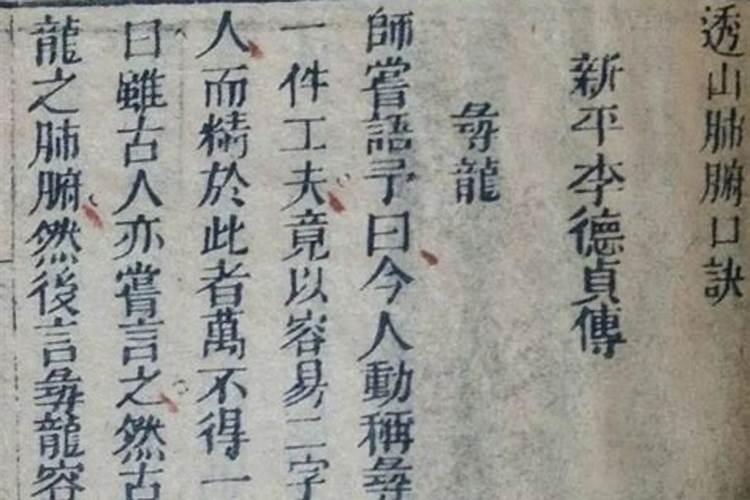 透山肺腑口訣
新平李德貞傳
尋龍
師嘗語予曰今人動稱尋
一件工夫竟以容易二字
人而精於此者萬不得一
曰雖古人亦嘗言之然古
龍之肺腑然後言尋龍容